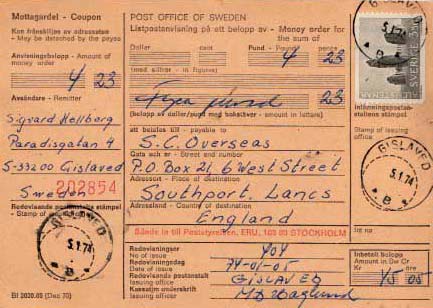 Mottagardel - Coupon
Kan frånskiljas av adressaten
- May be detached by the payee
Anvisningsbelopp - Amount of money order
4 23
Avsändare - Remitter
Sigvard Hellborg
Paradisgatan 4
S-33200 Gislaved
Sweden
202854
Redovisande postanstalts stämpel
- Stamp of
GISLAVED
5.1.74
B
BI 2020.03 (Dec 70)
POST OFFICE OF SWEDEN
Listpostanvisning på ett belopp av - Money order for the sum of
Dollar cent Pund - Pounds pence
4 23
(med siffror - in figures)
Fyra pund 23
(belopp av dollar/pund med bokstäver - amount in letters)
att betalas till - payable to
S.C. Overseas
Gata och nr - Street and number
P.O. Box 21, 6 West Street
Adressort - Place of destination
Southport, Lancs
Adressland - Country of destination
England
Sände in till Postgiro, ERU, 105 03 STOCKHOLM
Redovisningsnr
No of issue
404
Redovisningsdag
Date of issue
74-01-05
Redovisande postanstalt
Issuing office
GISLAVED
Kassatjm underskrift
Issuing officer
GISLAVED
5.1.74
B
SVERIGE
Inlämningspostanstaltens stämpel
Stamp of issuing office
GISLAVED
5.1.74
B
Inbetalt belopp
Amount in Sw Cr
Kr öre
45 05